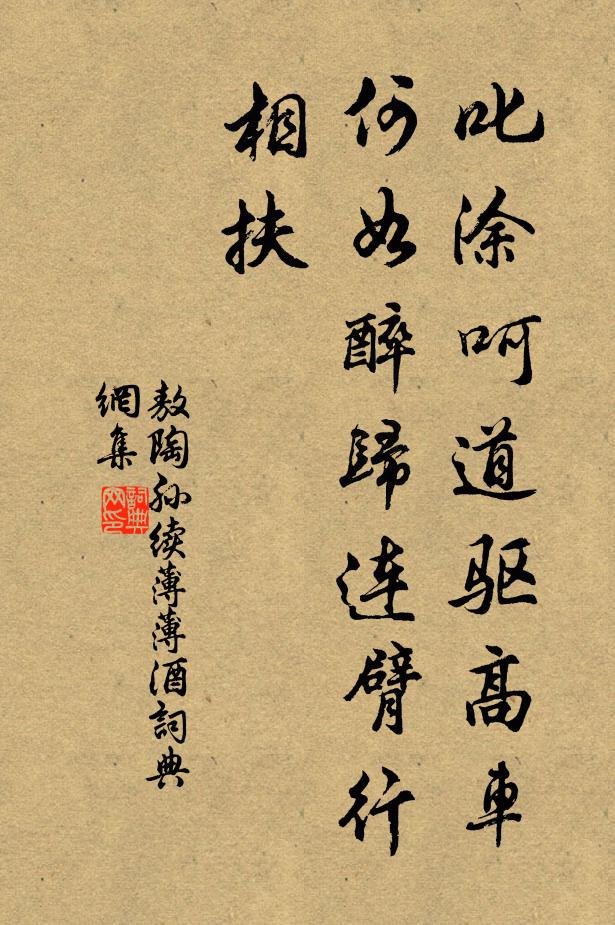 叱涂呵道驱高車
何如醉歸連臂行
相扶
敖陶孙续薄薄酒詞典
網集
詞典
网印